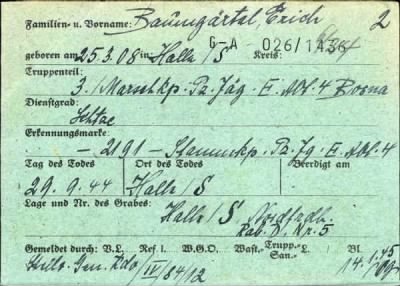 Familien- u. Vorname: Baumgärtel Erich 2
G-A 026/1436
geboren am 25.3.08 in Halle/S Kreis:
Truppenteil:
3./Marschkp. Pz. Jäg. E. Abt. 4 Borna
Dienstgrad:
Schtze
Erkennungsmarke:
- 2191 - Stammkp. Pz. Jg. E. Abt. 4
Tag des Todes Ort des Todes Beerdigt am
29.9.44 Halle/S
Lage und Nr. des Grabes:
Halle/S Nordfrdh.
Nr. 5
Gemeldet durch: V.L. Ref. I. W.G.O. Wast.- Trupp.- San.- L. Bl.
Gen. Kdo/IV/84/12 14.1.45